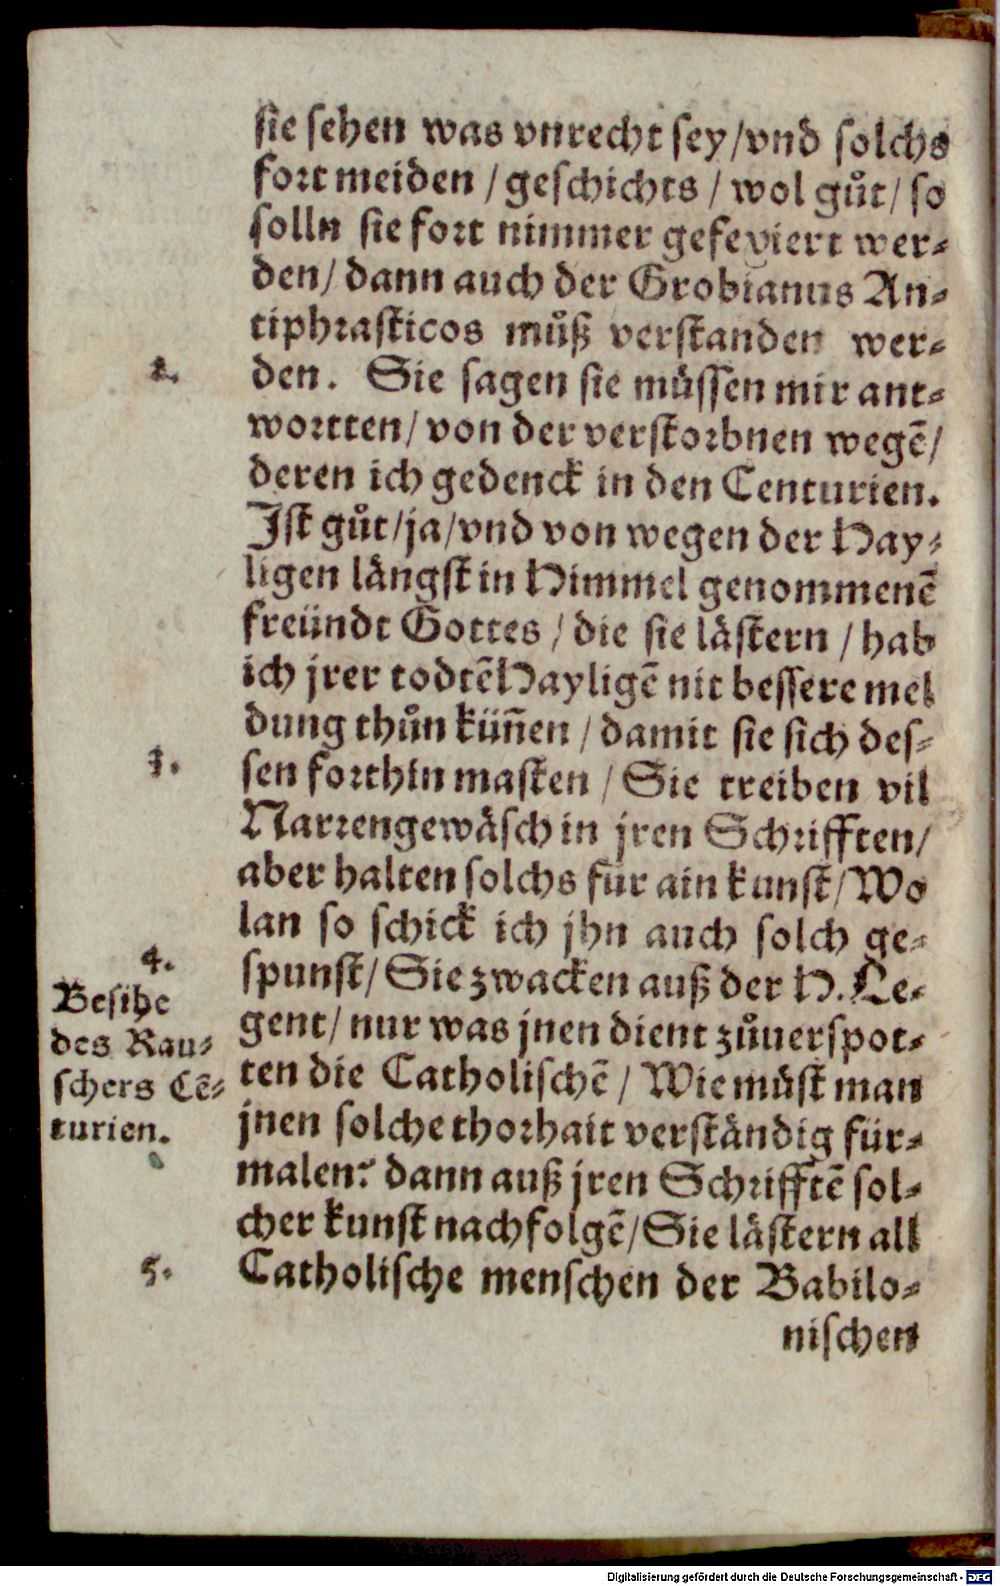 sie sehen was vnrecht sey/vnd solchs
fort meiden / geschichts / wol gůt/ so
solln sie fort nimmer gefeyiert wer-
den/ dann auch der Grobianus An-
tiphrasticos můß verstanden wer-
2.
den. Sie sagen sie müssen mir ant-
wortten/ von der verstorbnen wegē/
deren ich gedenck in den Centurien.
Ist gůt/ja/vnd von wegen der Hay-
ligen längst in Himmel genommenē
freündt Gottes / die sie lästern / hab
ich jrer todtē Hayligē nit bessere mel
dung thůn kün̄en / damit sie sich des-
3.
sen forthin masten / Sie treiben vil
Narrengewäsch in jren Schrifften/
aber halten solchs für ain kunst/Wo
lan so schick ich jhn auch solch ge-
4.
spunst/ Sie zwacken auß der H. Le-
Besihe
des Rau-
schers Cē-
turien.
gent/ nur was jnen dient zůuerspot-
ten die Catholischē / Wie müst man
jnen solche thorhait verständig für-
malen? dann auß jren Schrifftē sol-
cher kunst nachfolgē/Sie lästern all
5.
Catholische menschen der Babilo-
nischen
Digitalisierung gefördert durch die Deutsche Forschungsgemeinschaft - DFG